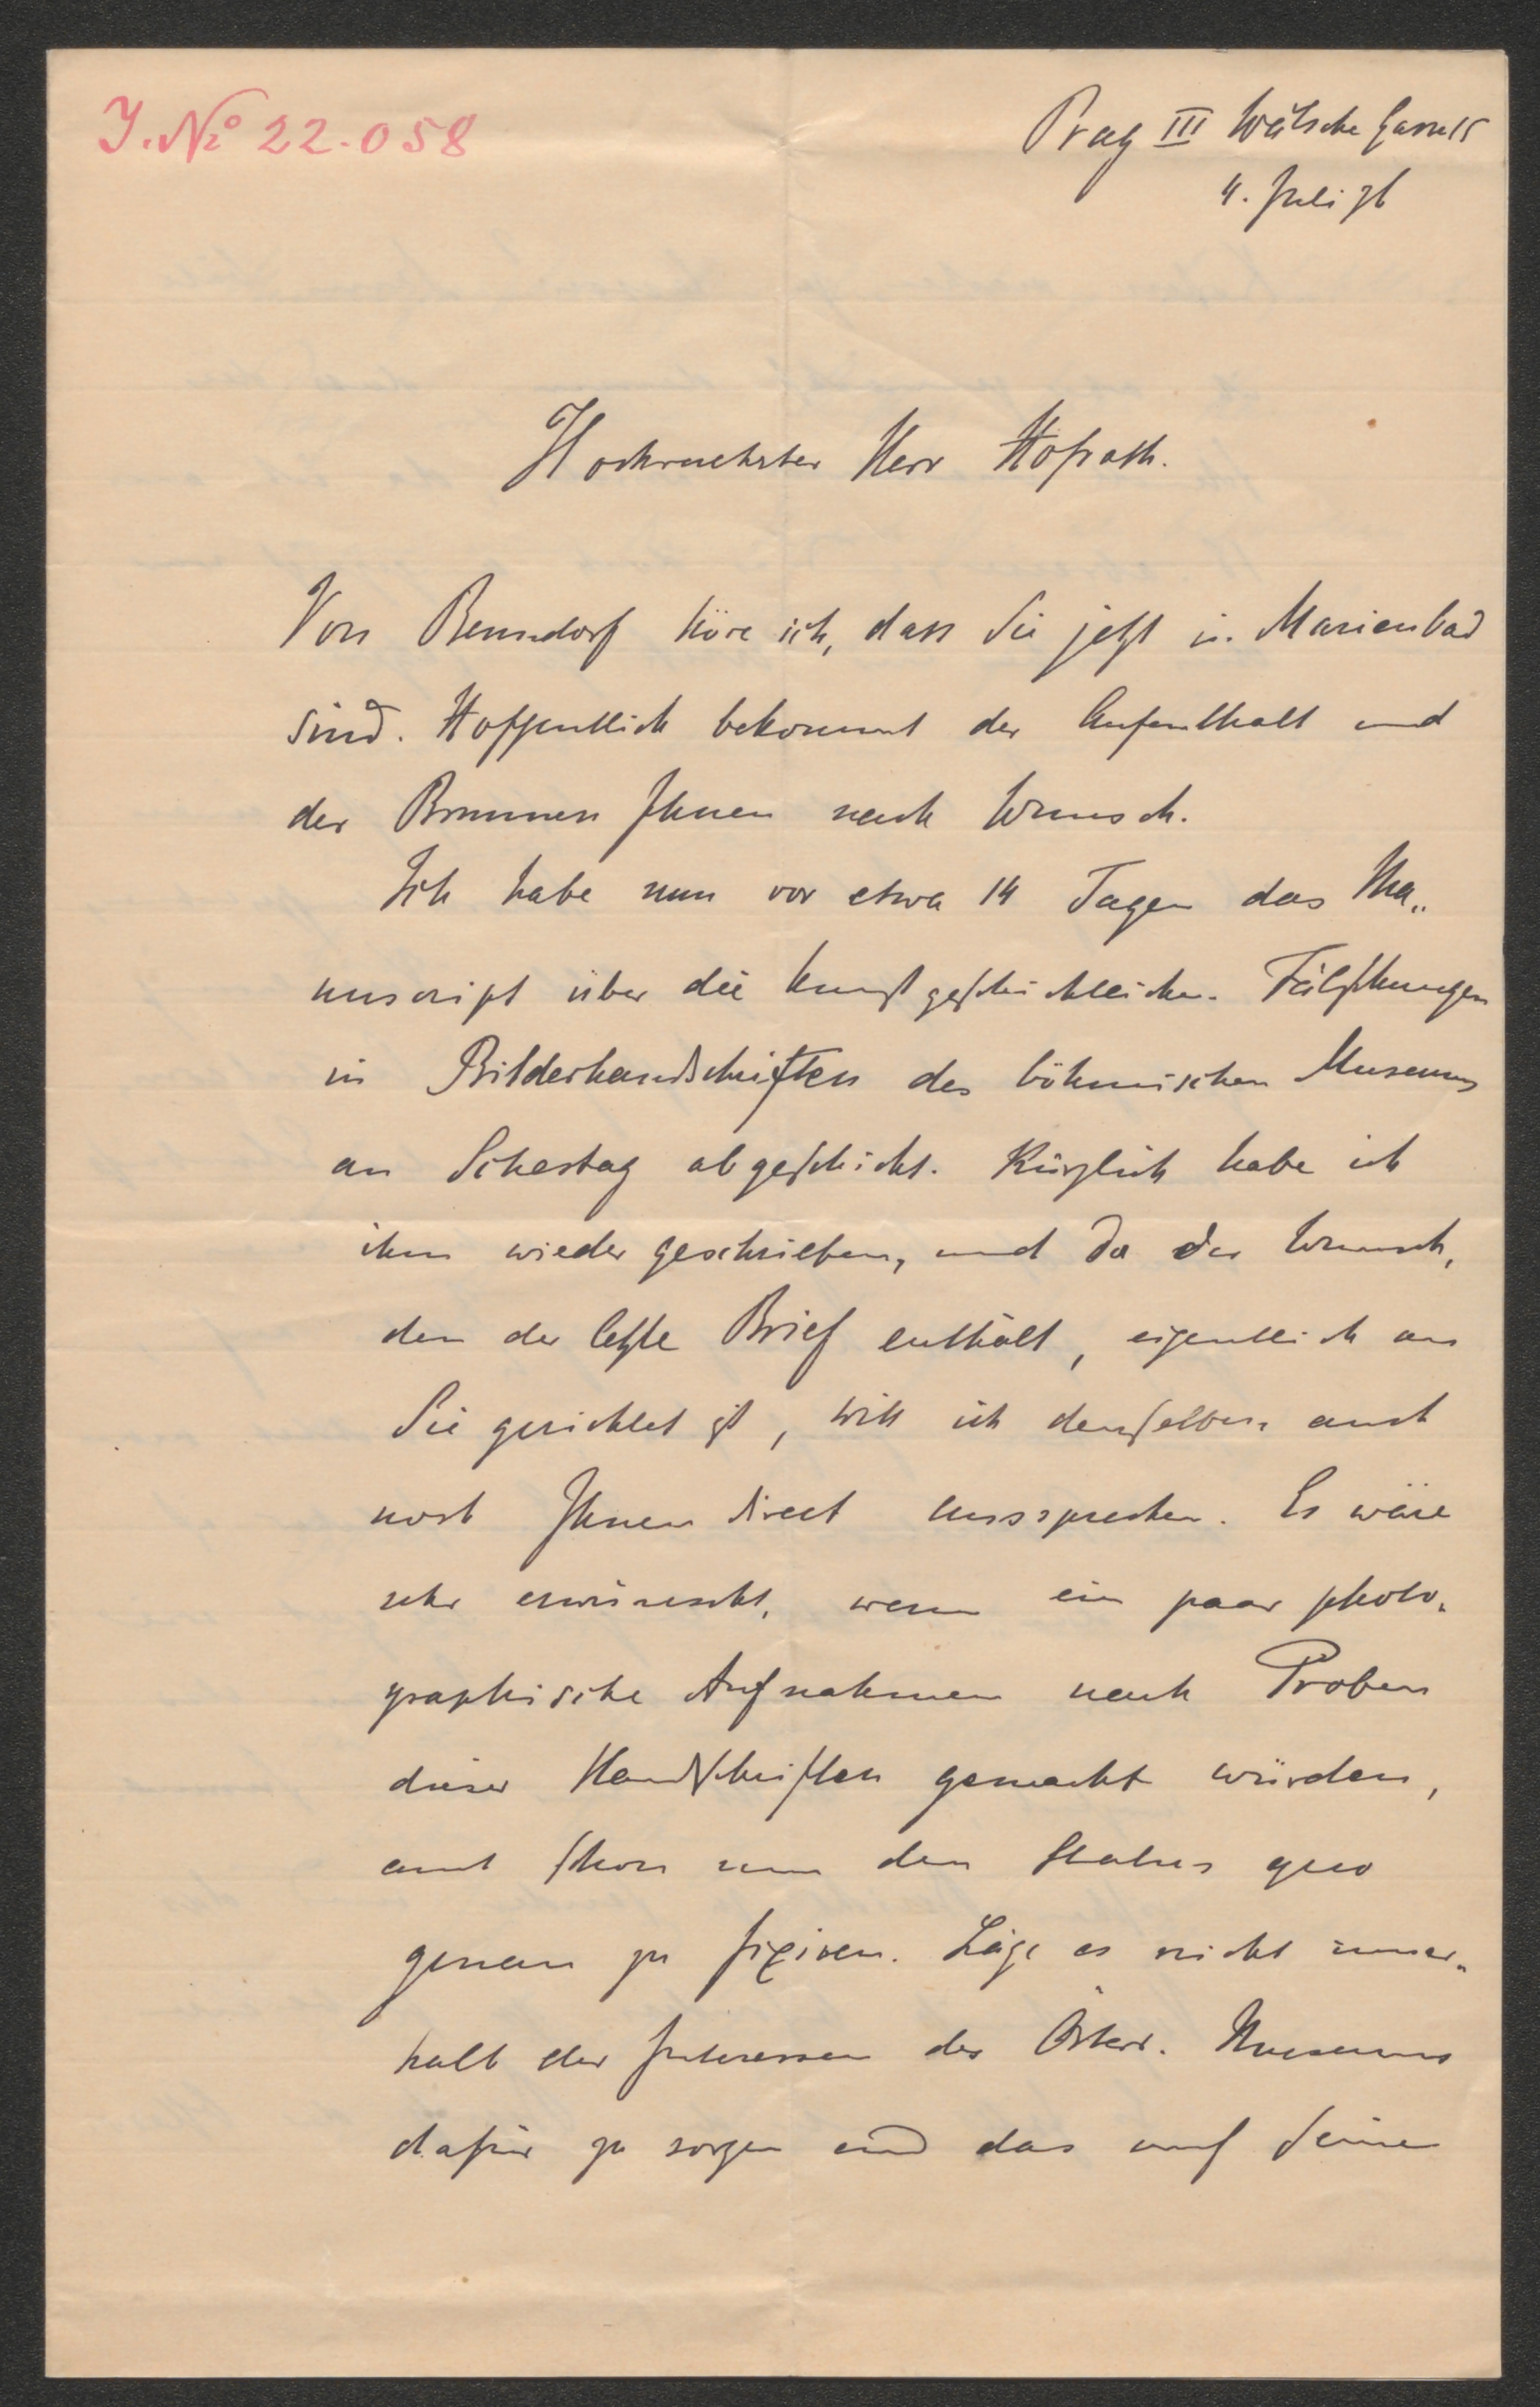 J. No 22.058
Prag III Wälsche Gasse 15
4. Juli 76
Hochverehrter Herr Hofrath.
Von Benndorf höre ich, dass Sie jetzt in Marienbad
sind. Hoffentlich bekommt der Aufenthalt und
der Brunnen Ihnen nach Wunsch.
Ich habe nun vor etwa 14 Tagen das Ma„
nuscript über die kunstgeschichtlichen Fälschungen
in Bilderhandschriften des böhmischen Museums
an Schestag abgeschickt. Kürzlich habe ich
ihm wieder geschrieben, und da der Wunsch,
den der letzte Brief enthält, eigentlich an
Sie gerichtet ist, will ich denselben auch
noch Ihnen direct aussprechen. Es wäre
sehr erwünscht, wenn ein paar photo„
graphische Aufnahmen nach Proben
dieser Handschriften gemacht würden,
auch schon um den Status quo
genau zu fixiren. Läge es nicht inner„
halb der Interessen des Österr. Museums
dafür zu sorgen und das auf seine